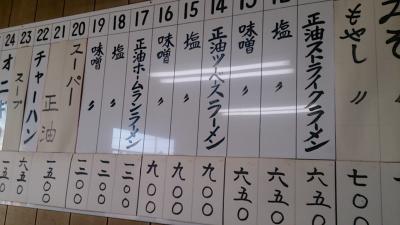 もやし 〃 七〇〇
正油ストライクラーメン 六五〇
塩 〃 六五〇
13 味噌 〃 六五〇
14 正油ツーベースラーメン 九〇〇
15 塩 〃 九〇〇
16 味噌 〃 九〇〇
17 正油ホームランラーメン
18 塩 〃
19 味噌 〃
20 スーパー
21 正油
22 チャーハン
23 スープ 六五〇
24 オニギ 一五〇